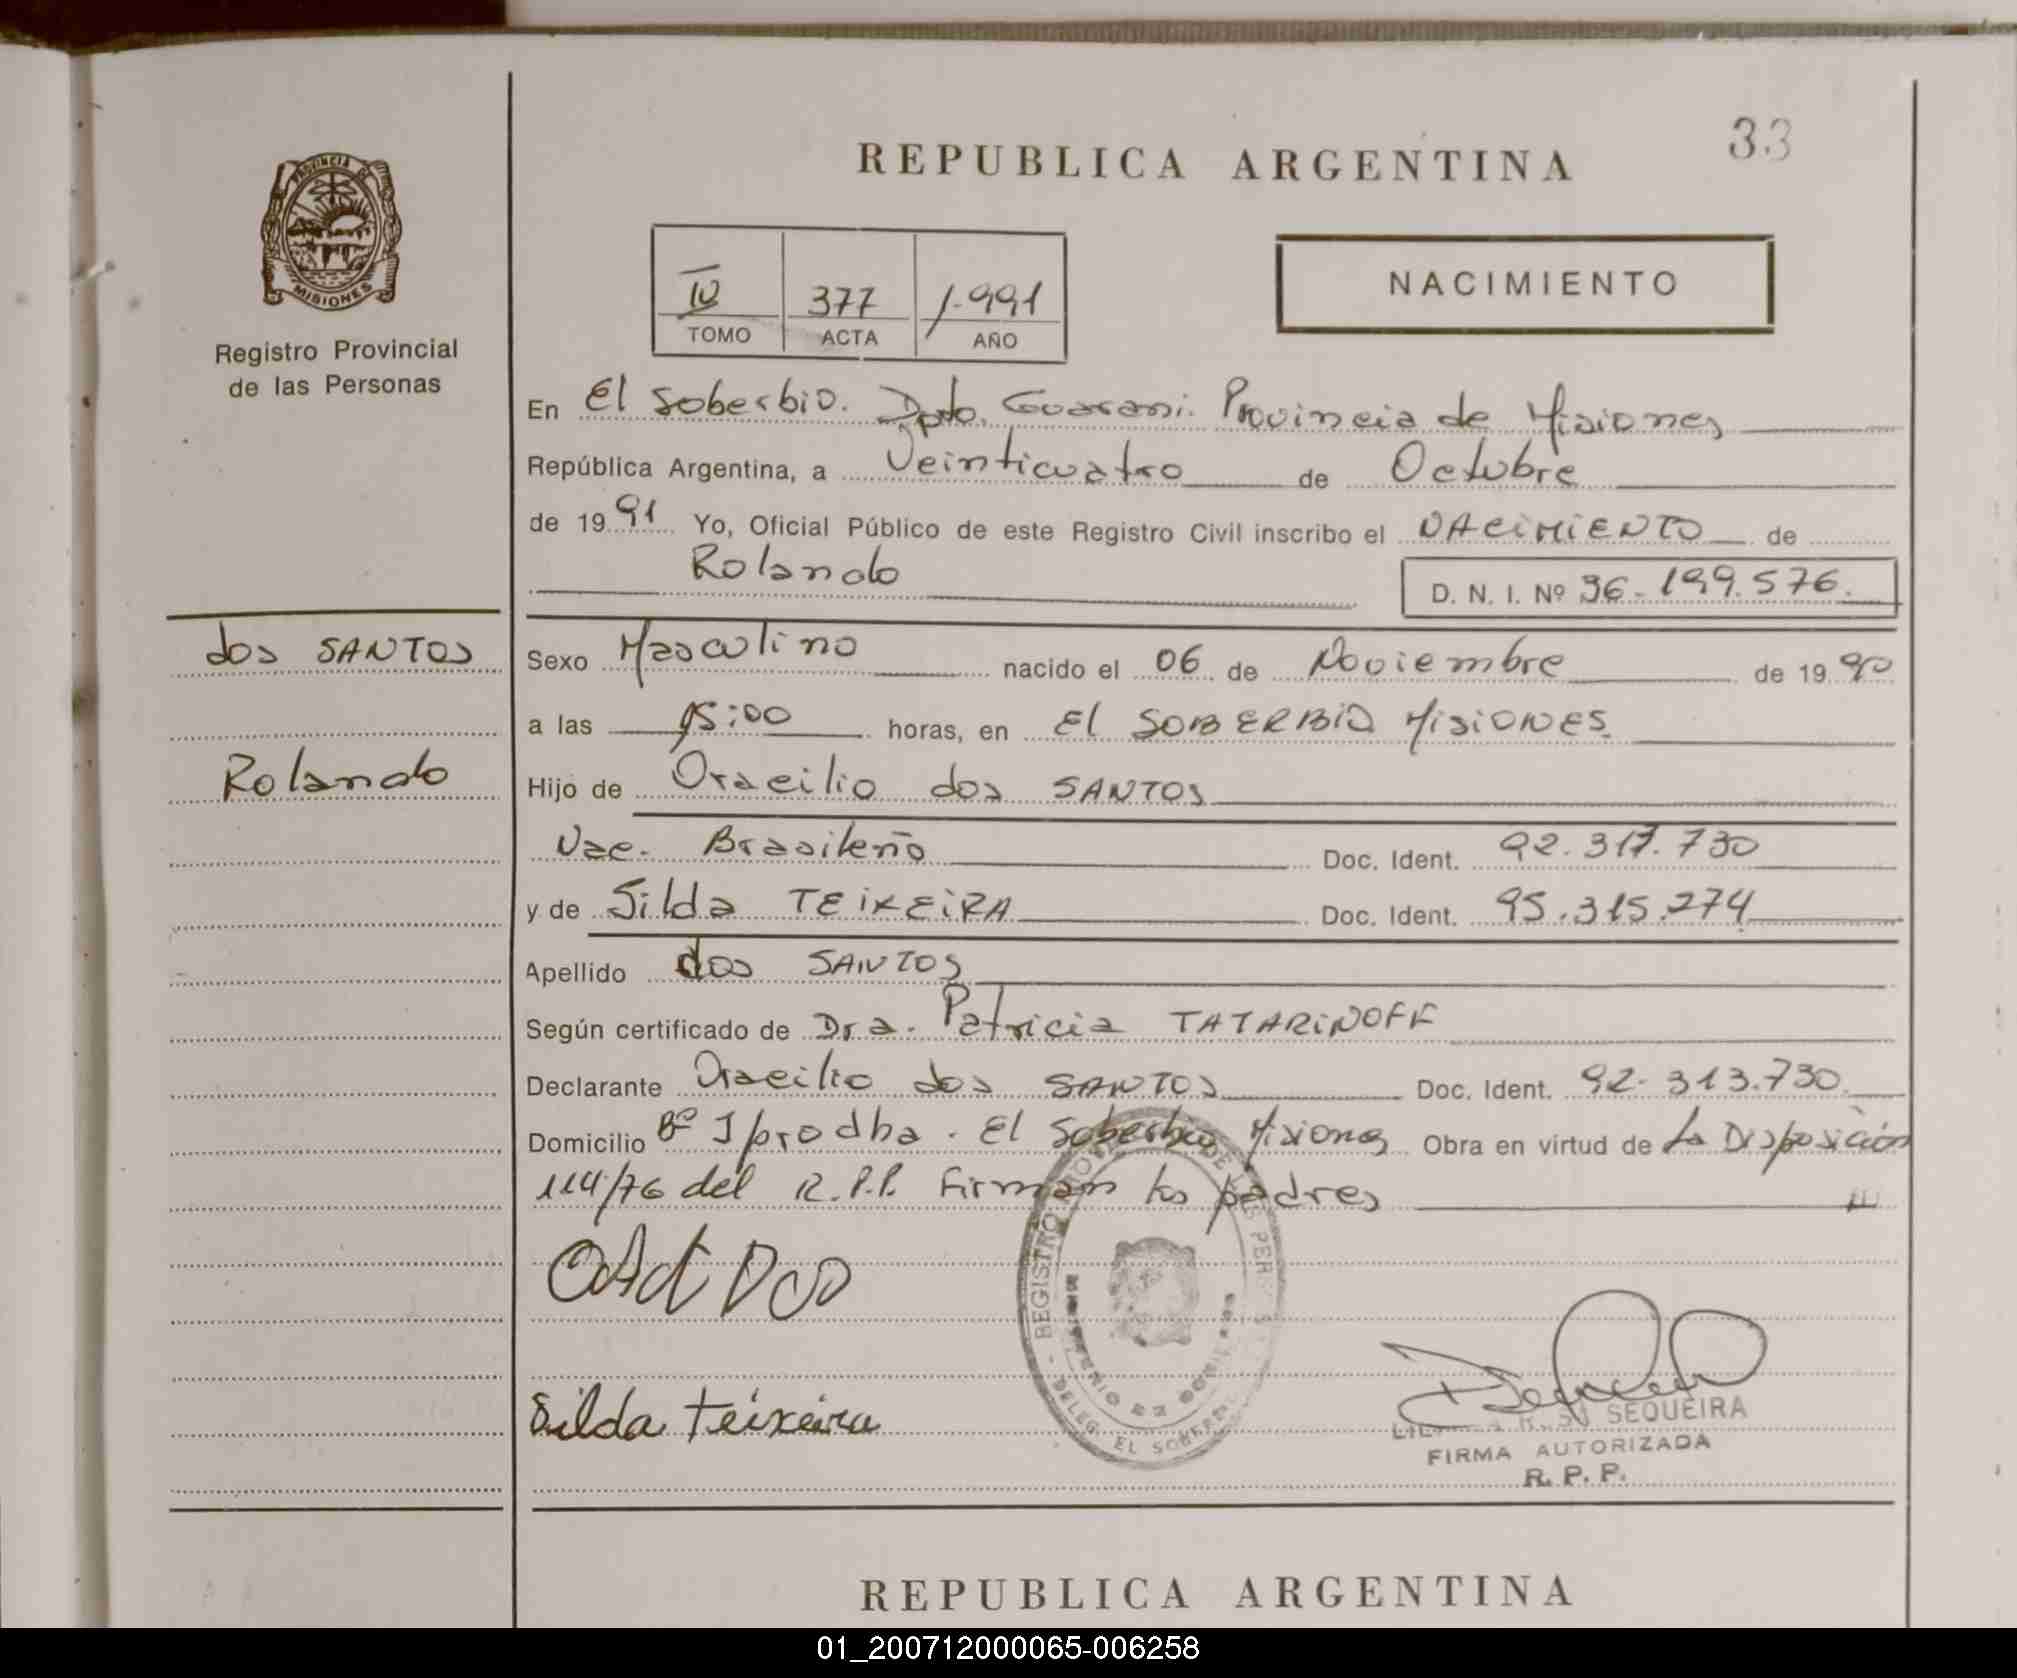 33
REPUBLICA ARGENTINA
PROVINCIA DE
MISIONES
Registro Provincial
de las Personas
IV 377 1.991
TOMO ACTA AÑO
NACIMIENTO
En El Soberbio. Dpto. Guarani. Provincia de Misiones
República Argentina, a Veinticuatro de Octubre
de 1991 Yo, Oficial Público de este Registro Civil inscribo el NACIMIENTO de
Rolando D. N. I. Nº 36.199.576.
dos SANTOS
Rolando
Sexo Masculino nacido el 06 de Noviembre de 1990
a las 15:00 horas, en El SOBERBIO MISIONES.
Hijo de Oracilio dos SANTOS
Nac. Brasileño Doc. Ident. 92.317.730
y de Silda TEIXEIRA Doc. Ident. 95.315.274
Apellido dos SANTOS
Según certificado de Dra. Patricia TATARINOFF
Declarante Oracilio dos SANTOS Doc. Ident. 92.313.730
Domicilio Bº Iprodha. El Soberbio Misiones Obra en virtud de La Disposición
114/76 del R.P.P. Firman los padres
Silda teixeira
REGISTRO DE LAS PERS
DELEG. EL SOBERBIO
SEQUEIRA
FIRMA AUTORIZADA
R. P. P.
REPUBLICA ARGENTINA
01_200712000065-006258